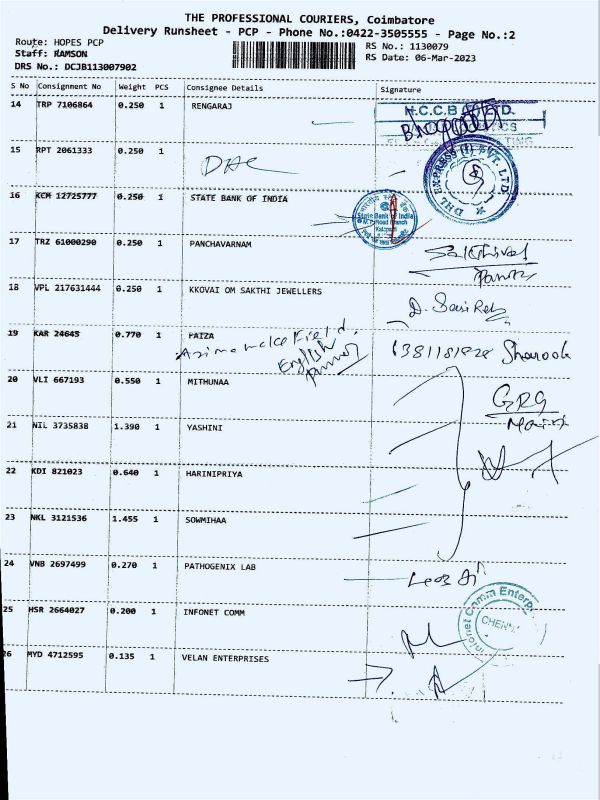 THE PROFESSIONAL COURIERS, Coimbatore
Delivery Runsheet - PCP - Phone No.:0422-3505555 - Page No.:2
Route: HOPES PCP
RS No.: 1130079
Staff: RAMSON
RS Date: 06-Mar-2023
DRS No.: DCJB113007902
S No Consignment No Weight PCS Consignee Details Signature
14 TRP 7106864 0.250 1 RENGARAJ
N.C.C.B
15 RPT 2061333 0.250 1
DHL
DHL EXPRESS (I) PVT. LTD
16 KCM 12725777 0.250 1 STATE BANK OF INDIA
State Bank of India
17 TRZ 61000290 0.250 1 PANCHAVARNAM
Sakthivel
18 VPL 217631444 0.250 1 KKOVAI OM SAKTHI JEWELLERS
19 KAR 24645 0.770 1 FAIZA
English
Sharook
20 VLI 667193 0.550 1 MITHUNAA
GRG
21 NIL 3735838 1.390 1 YASHINI
22 KDI 821023 0.640 1 HARINIPRIYA
23 NKL 3121536 1.455 1 SOWMIHAA
24 VNB 2697499 0.270 1 PATHOGENIX LAB
25 HSR 2664027 0.200 1 INFONET COMM
Infonet Comm Enterpr
CHENN
26 MYD 4712595 0.135 1 VELAN ENTERPRISES